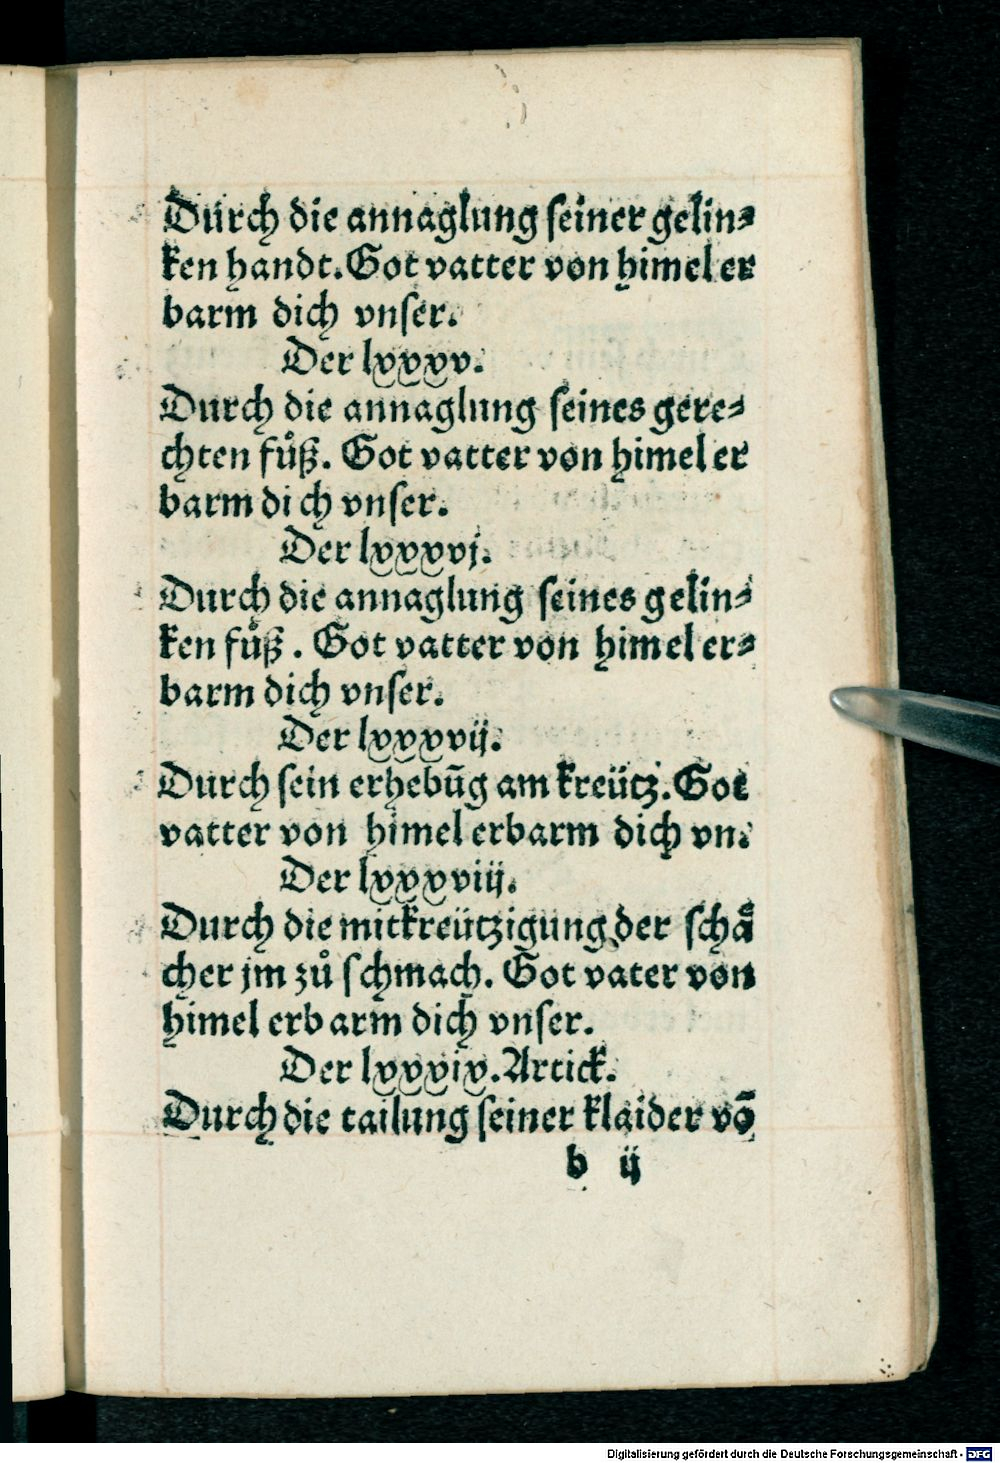 Durch die annaglung seiner gelin⸗
ken handt. Got vatter von himel er
barm dich vnser.
Der lxxxv.
Durch die annaglung seines gere⸗
chten fuͦß. Got vatter von himel er
barm dich vnser.
Der lxxxvj.
Durch die annaglung seines gelin⸗
ken fuͦß. Got vatter von himel er⸗
barm dich vnser.
Der lxxxvij.
Durch sein erhebūg am kreütz. Got
vatter von himel erbarm dich vn.
Der lxxxviij.
Durch die mitkreützigung der schaͤ
cher jm zuͦ schmach. Got vater von
himel erbarm dich vnser.
Der lxxxix. Artick.
Durch die tailung seiner klaider vō
b ij
Digitalisierung gefördert durch die Deutsche Forschungsgemeinschaft - DFG